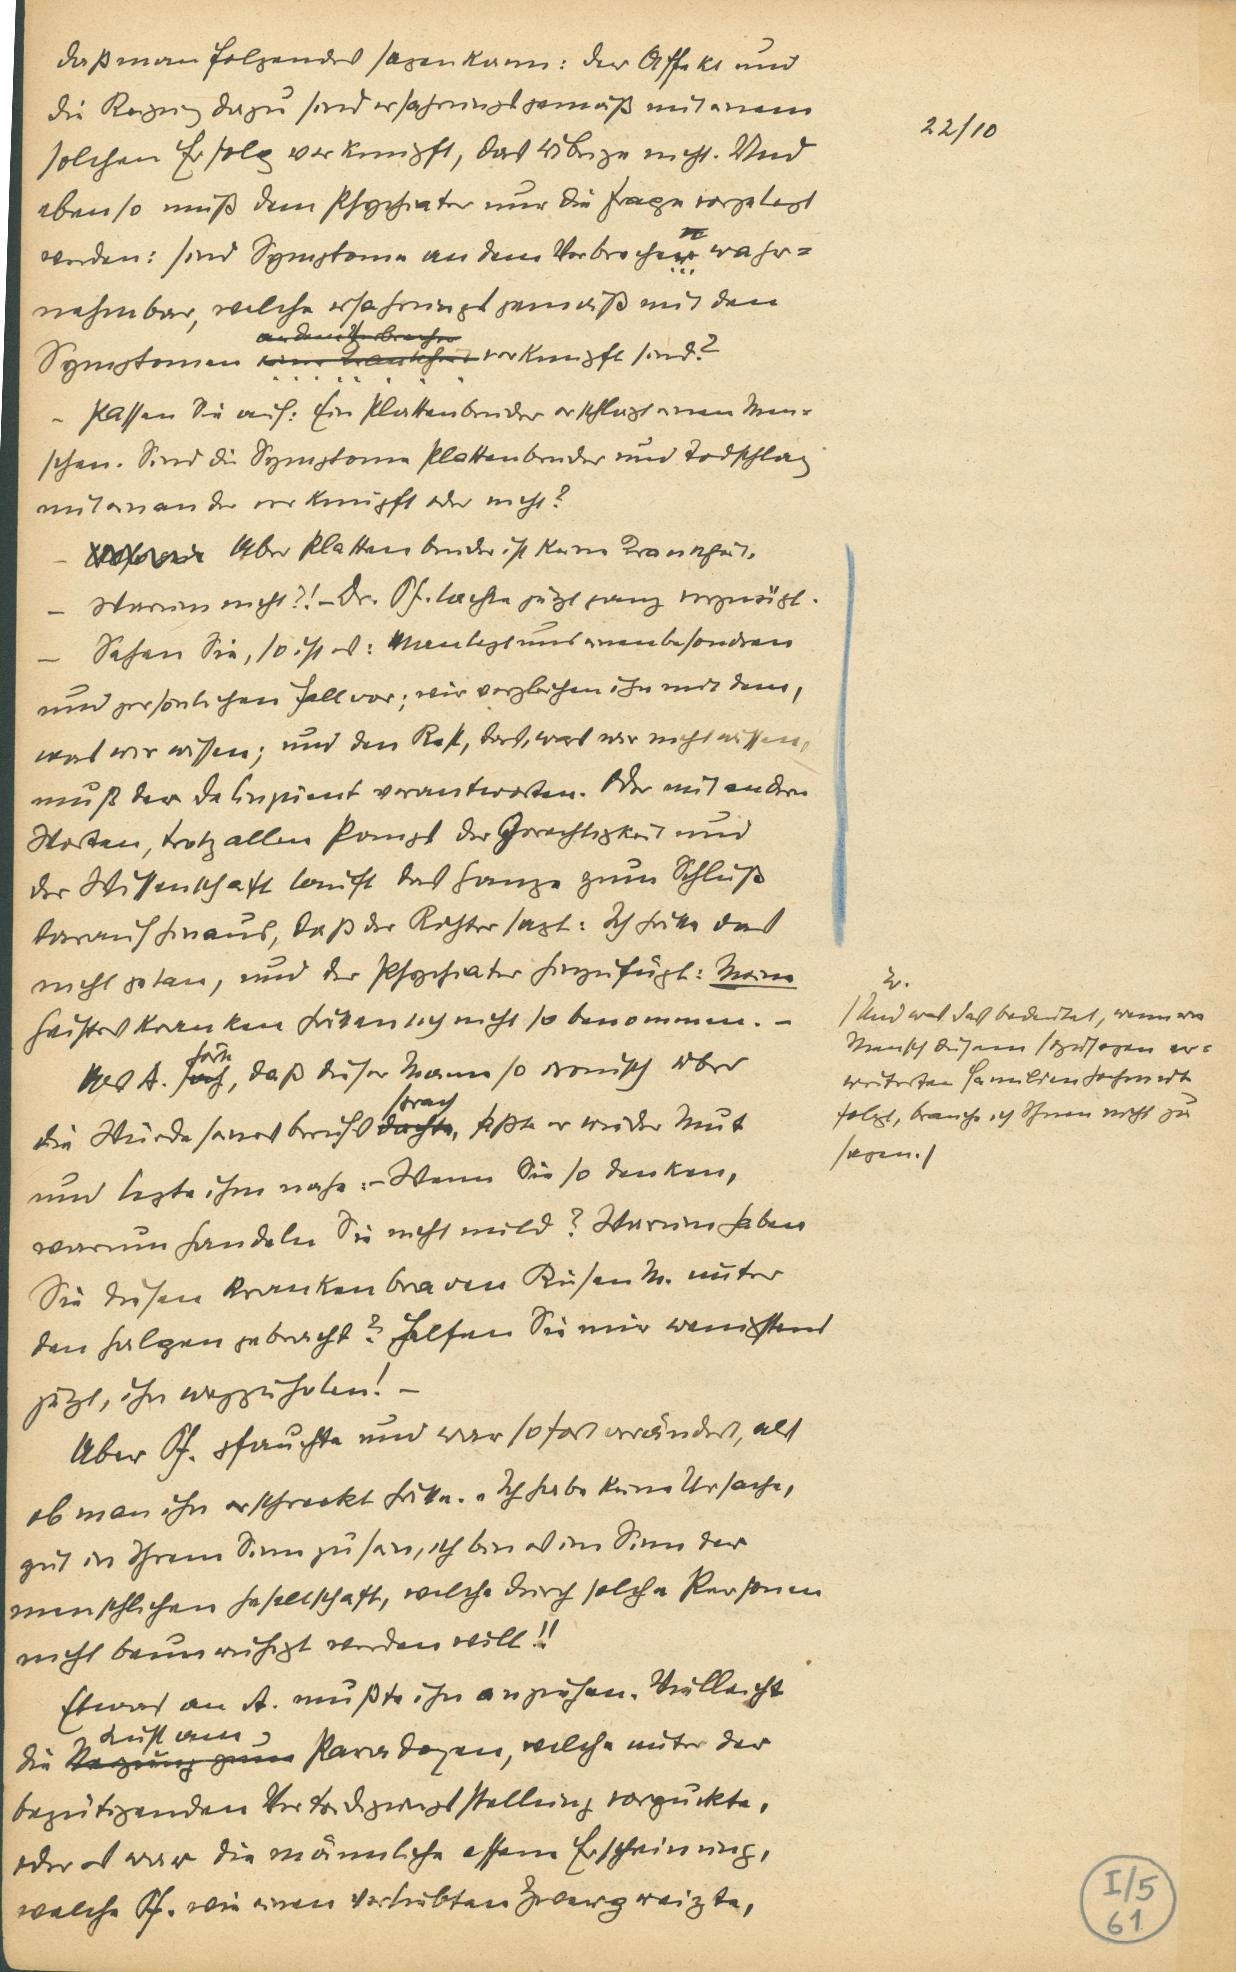 daß man folgendes sagen kann: der Affekt und
die Reizung dazu sind erfahrungsgemäß mit einem
22/10
solchen Erfolg verknüpft, das übrige nicht. Und
ebenso muß dem Psychiater nur die Frage vorgelegt
werden: sind Symptome an dem Verbrechen wahr=
nehmbar, welche erfahrungsgemäß mit den
an dem Verbrecher
Symptomen verknüpft sind?
– Passen Sie auf: Ein Plattenbruder erschlägt einen Men=
schen. Sind die Symptome Plattenbruder und Todschlag
miteinander verknüpft oder nicht?
– Aber Plattenbruder ist keine Krankheit.
– Warum nicht?! – Dr. Pf. lachte jetzt ganz vergnügt.
– Sehen Sie, so ist es: Man legt uns einen besondren
und persönlichen Fall vor; wir vergleichen ihn mit dem,
was wir wissen; und den Rest, das, was wir nicht wissen,
muß der Delinquent verantworten. Oder mit andern
Worten, trotz allem Pomps der Gerechtigkeit und
der Wissenschaft läuft das Ganze zum Schluß
darauf hinaus, daß der Richter sagt: Ich hätte das
nicht getan, und der Psychiater hinzufügt: Meine
Geisteskranken hätten sich nicht so benommen. –
2.
/Und was das bedeutet, wenn ein
Mensch diesem sozusagen er=
weiterten Familiensechmerte
folgt, brauche ich Ihnen nicht zu
sagen./
hörte
Als A. sah, daß dieser Mann so ironisch über
sprach
die Würde seines Berufs dachte, faßte er wieder Mut
und legte ihm nahe: – Wenn Sie so denken,
warum handeln Sie nicht mild? Warum haben
Sie diesen kranken braven Riesen M. unter
den Galgen gebracht? Helfen Sie mir wenigstens
jetzt, ihn wegzuholen! –
Aber Pf. pfauchte und war sofort verändert, als
ob man ihn erschreckt hätte. „Ich habe keine Ursache,
gut in Ihrem Sinn zu sein, ich bin es im Sinn der
menschlichen Gesellschaft, welche durch solche Personen
nicht beunruhigt werden will!!
Etwas an A. mußte ihn anziehen. Vielleicht
Lust am
die Neigung zum Paradoxen, welche unter der
begütigenden Verteidigungsstellung vorguckte,
oder es war die männliche offene Erscheinung,
welche Pf. wie einen verliebten Zwerg reizte,
I/5
61